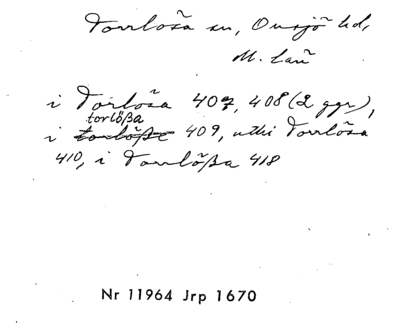 Torrlösa sn, Onsjö hd,
M. län
i Torlösa 407, 408 (2 ggr),
torlößa
i torlößa 409, uthi Torrlösa
410, i Torrlößa 418
Nr 11964 Jrp 1670